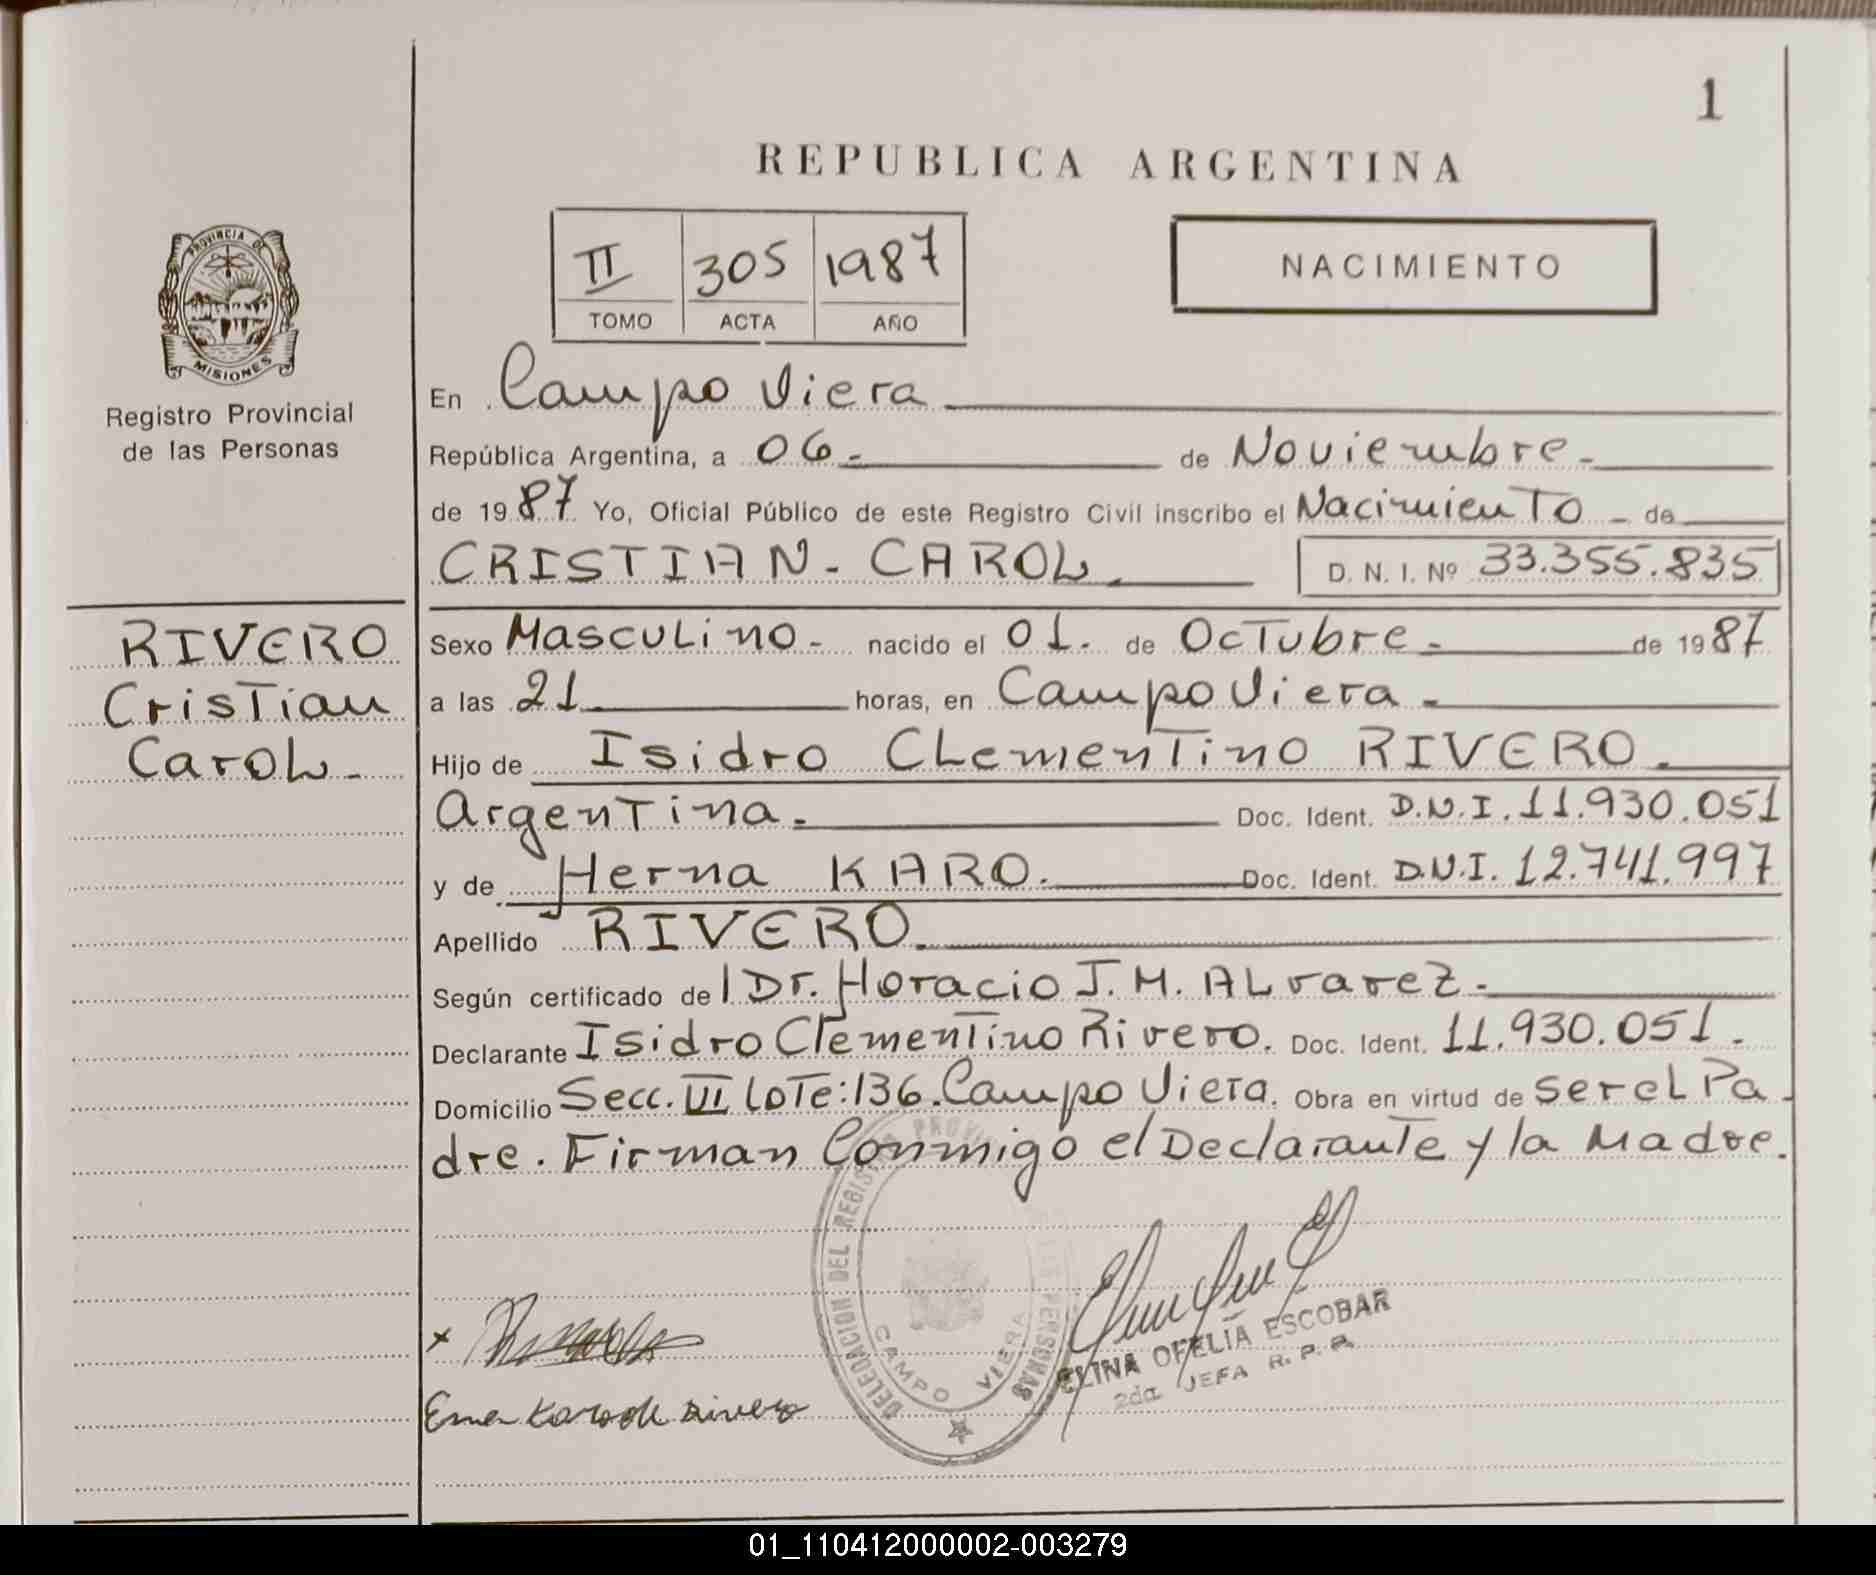 1
REPUBLICA ARGENTINA
II 305 1987
TOMO ACTA AÑO
NACIMIENTO
PROVINCIA DE
MISIONES
Registro Provincial
de las Personas
En Campo Viera
República Argentina, a 06.- de Noviembre.-
de 1987 Yo, Oficial Público de este Registro Civil inscribo el Nacimiento - de
CRISTIAN - CAROL. D. N. I. Nº 33.355.835
RIVERO
Cristian
Carol.-
Sexo Masculino.- nacido el 01. de Octubre.- de 1987
a las 21 horas, en Campo Viera.-
Hijo de Isidro Clementino RIVERO.
Argentina.- Doc. Ident. D.N.I. 11.930.051
y de Herna KARO. Doc. Ident. D.N.I. 12.741.997
Apellido RIVERO.
Según certificado de l Dr. Horacio J. M. Alvarez.-
Declarante Isidro Clementino Rivero. Doc. Ident. 11.930.051.
Domicilio Secc. VI Lote: 136. Campo Viera. Obra en virtud de ser el Pa-
dre. Firman Conmigo el Declarante y la Madre.
DELEGACION DEL REGISTRO PROVINCIAL DE LAS PERSONAS
CAMPO VIERA
ELINA OFELIA ESCOBAR
2da JEFA R. P. P.
Karo de Rivero
01_110412000002-003279